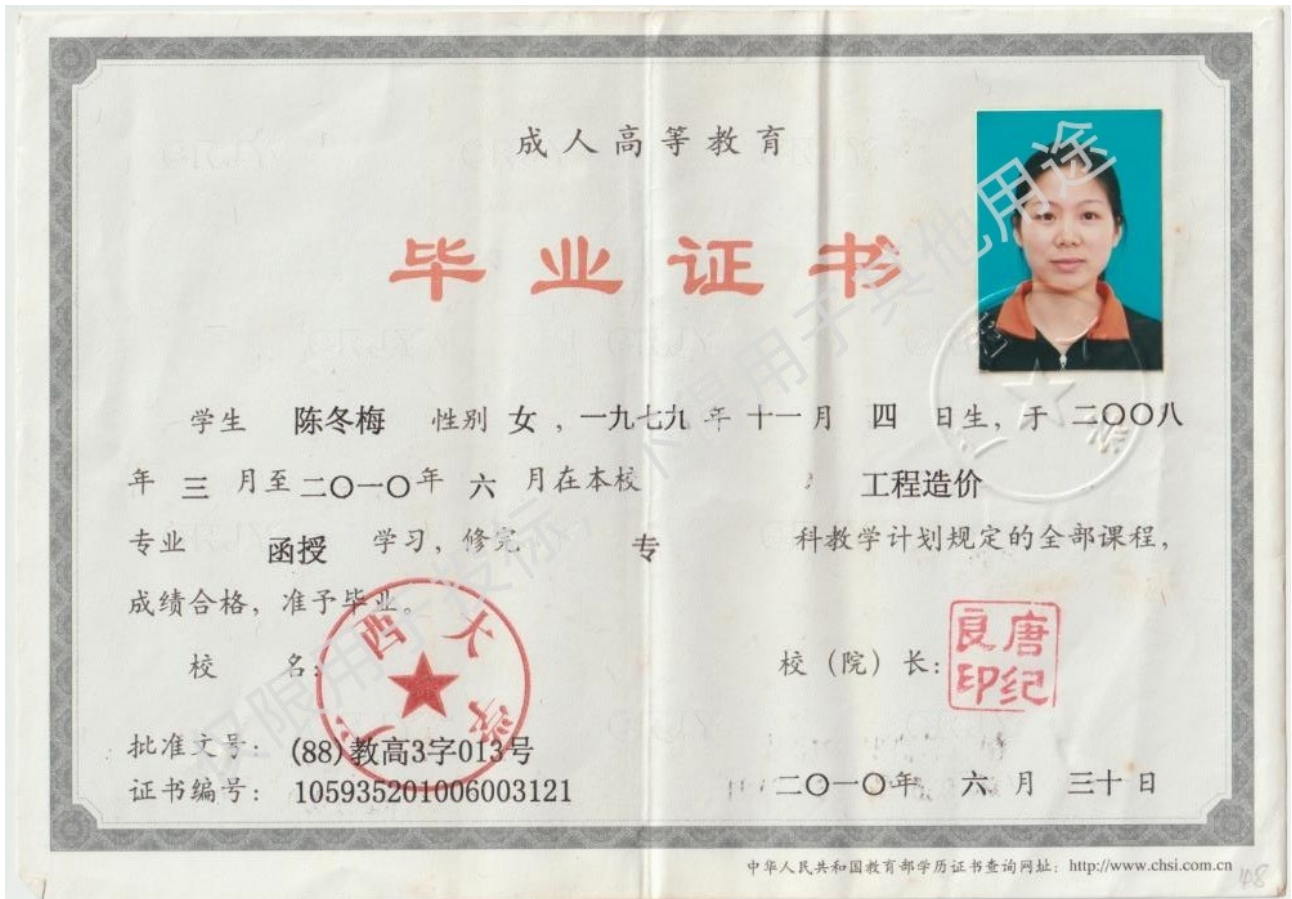 成人高等教育
毕业证书
学生 陈冬梅 性别 女，一九七九年十一月 四 日生，于 二〇〇八
年 三 月至二〇一〇年 六 月在本校 工程造价
专业 函授 学习，修完 专 科教学计划规定的全部课程，
成绩合格，准予毕业。
校 名： 校（院）长：
广西大学
唐纪良印
批准文号： (88)教高3字013号
证书编号： 105935201006003121
二〇一〇年 六 月 三十 日
中华人民共和国教育部学历证书查询网址：http://www.chsi.com.cn
仅限用于投标，不得用于其他用途